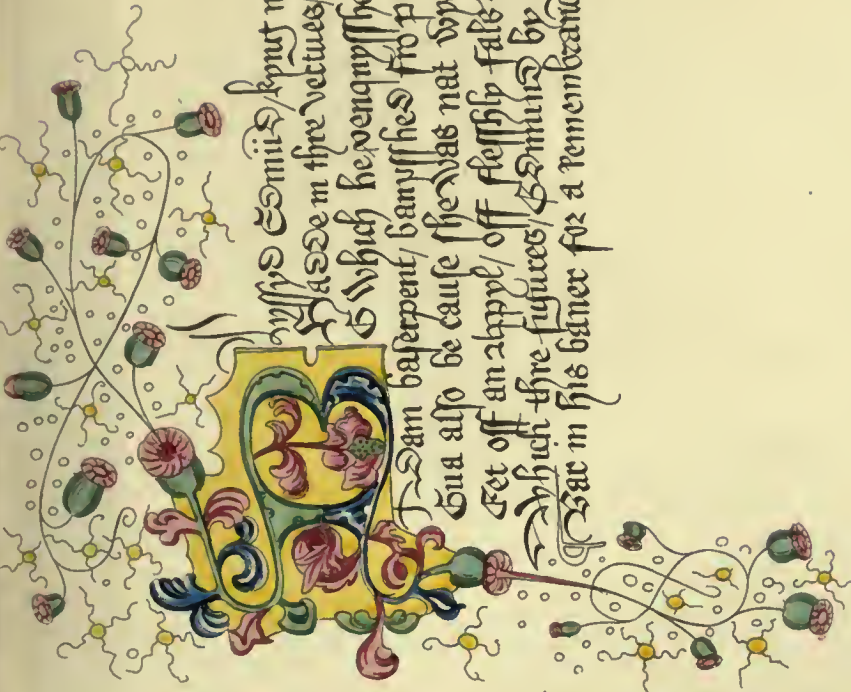 Blyssyd Edmūd/ kyng m
Hadde in thre vertues/
B which he venquysshe
Adam baserpent/ banysshed fro p
Eua also be cause she was nat wy
Eet off an appyl/ off flesshly fals
Which thre figures/ Edmund by
Bar in his baner for a remembranc